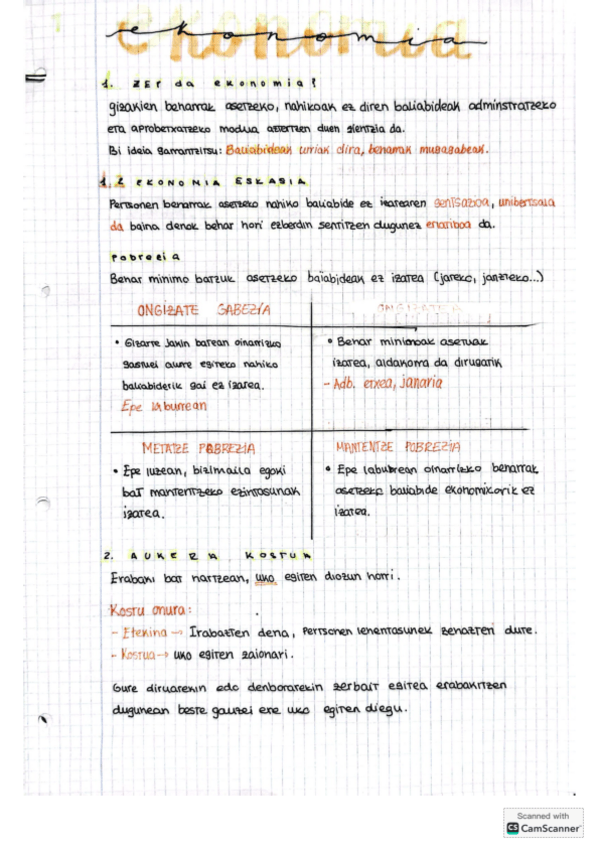 ekonomia
1. Zer da ekonomia?
gizakien beharrak asetzeko, nahikoak ez diren baliabideak adminstratzeko
eta aprobetxatzeko modua aztertzen duen zientzia da.
Bi ideia garrantzitsu: Baliabideak urriak dira, beharrak mugagabeak.
1.2 EKONOMIA ESKASIA
Pertsonen beharrak asetzeko nahiko baliabide ez izatearen sentsazioa, unibertsala
da baina denok behar hori ezberdin sentitzen dugunez erlatiboa da.
Pobrezia
Behar minimo batzuk asetzeko baiabideak ez izatea (jateko, janzteko...)
ONGIZATE GABEZIA
• Gizarte jakin batean oinarrizko
gastuei aurre egiteko nahiko
baliabiderik gai ez izatea.
Epe laburrean
• Behar minimoak aseruak
izatea, aldakorra da dirugatik
- Adb. etxea, janaria
METATZE POBREZIA
• Epe luzean, bizimaila egoki
bat mantentzeko ezintasunak
izatea.
MANTENTZE POBREZIA
• Epe laburean oinarrizko beharrak
asetzeko baliabide ekonomikorik ez
izatea.
2. AUKERA KOSTUA
Erabaki bat hartzean, uko egiten diozun horri.
Kostu onura:
- Etekina → Irabazten dena, pertsonen lehentasunek zehazten dute.
- Kostua → uko egiten zaionari.
Gure diruarekin edo denborarekin zerbait egitea erabakitzen
dugunean beste gauzei ere uko egiten diegu.
Scanned with
CS CamScanner